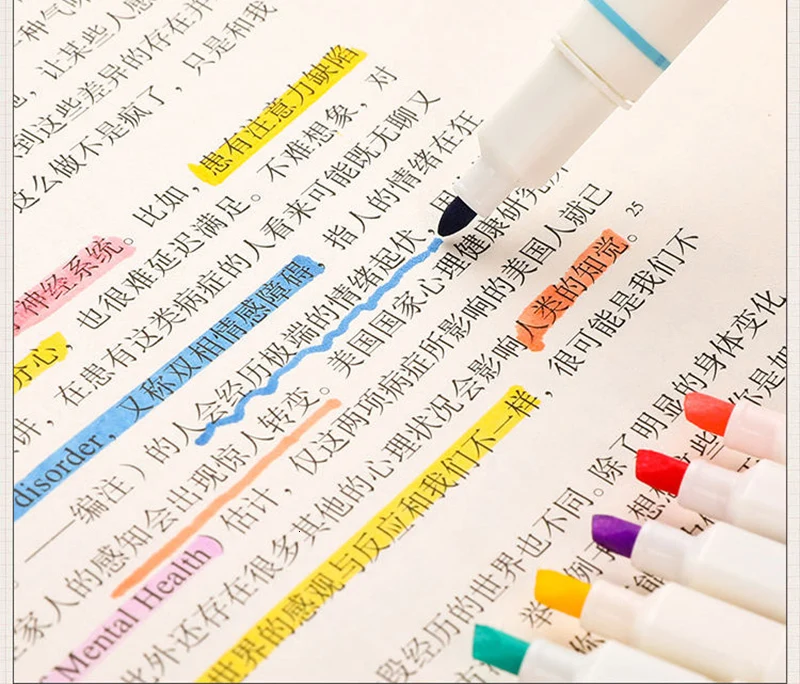 种气
，让某些人感
到这些差异的存在并
这么做不是疯了，只是和我
比如，患有注意力缺陷
神经系统。不难想象，对
分心，也很难延迟满足。
讲，在患有这类病症的人看来可能既无聊又
disorder，又称双相情感障碍，指人的情绪在狂
——编注）的人会经历极端的情绪起伏，用
家人的感知会出现惊人转变。美国国家心理健康研究所
Mental Health）估计，仅这两项病症所影响的美国人就已
此外还存在很多其他的心理状况会影响人类的知觉。25
世界的感观与反应和我们不一样，很可能是我们不
段经历的世界也不同。除了明显的身体变化
举例